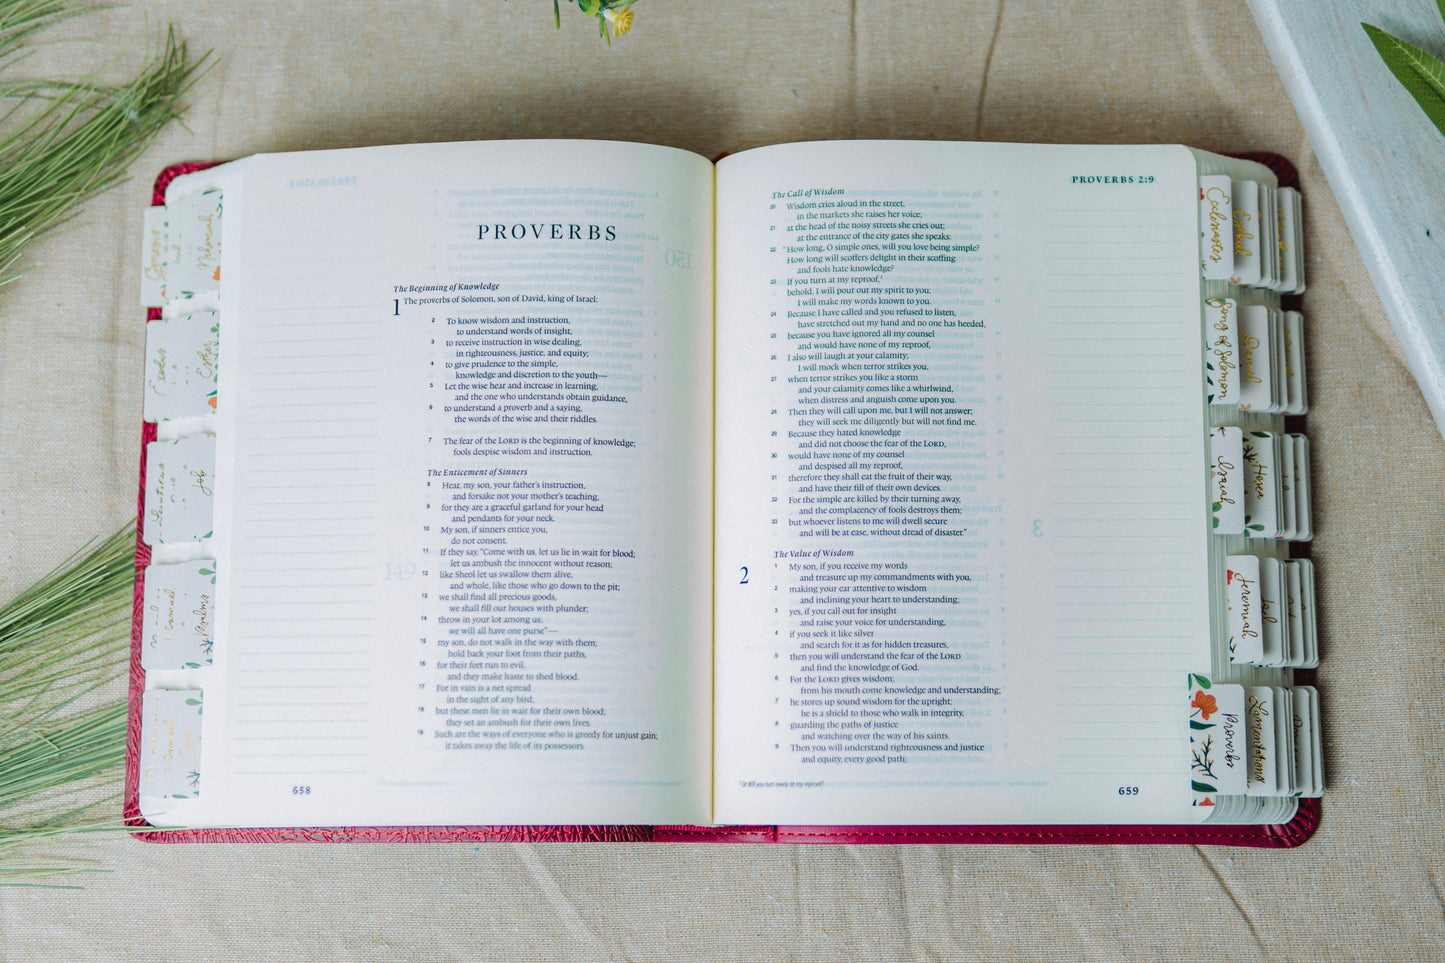 PROVERBS
The Beginning of Knowledge
1 The proverbs of Solomon, son of David, king of Israel:
2 To know wisdom and instruction,
to understand words of insight,
3 to receive instruction in wise dealing,
in righteousness, justice, and equity;
4 to give prudence to the simple,
knowledge and discretion to the youth—
5 Let the wise hear and increase in learning,
and the one who understands obtain guidance,
6 to understand a proverb and a saying,
the words of the wise and their riddles.
7 The fear of the LORD is the beginning of knowledge;
fools despise wisdom and instruction.
The Enticement of Sinners
8 Hear, my son, your father's instruction,
and forsake not your mother's teaching,
9 for they are a graceful garland for your head
and pendants for your neck.
10 My son, if sinners entice you,
do not consent.
11 If they say, "Come with us, let us lie in wait for blood;
let us ambush the innocent without reason;
12 like Sheol let us swallow them alive,
and whole, like those who go down to the pit;
13 we shall find all precious goods,
we shall fill our houses with plunder;
14 throw in your lot among us;
we will all have one purse"—
15 my son, do not walk in the way with them;
hold back your foot from their paths,
16 for their feet run to evil,
and they make haste to shed blood.
17 For in vain is a net spread
in the sight of any bird,
18 but these men lie in wait for their own blood;
they set an ambush for their own lives.
19 Such are the ways of everyone who is greedy for unjust gain;
it takes away the life of its possessors.
658
PROVERBS 2:9
The Call of Wisdom
20 Wisdom cries aloud in the street,
in the markets she raises her voice;
21 at the head of the noisy streets she cries out;
at the entrance of the city gates she speaks:
22 "How long, O simple ones, will you love being simple?
How long will scoffers delight in their scoffing
and fools hate knowledge?
23 If you turn at my reproof,¹
behold, I will pour out my spirit to you;
I will make my words known to you.
24 Because I have called and you refused to listen,
have stretched out my hand and no one has heeded,
25 because you have ignored all my counsel
and would have none of my reproof,
26 I also will laugh at your calamity;
I will mock when terror strikes you,
27 when terror strikes you like a storm
and your calamity comes like a whirlwind,
when distress and anguish come upon you.
28 Then they will call upon me, but I will not answer;
they will seek me diligently but will not find me.
29 Because they hated knowledge
and did not choose the fear of the LORD,
30 would have none of my counsel
and despised all my reproof,
31 therefore they shall eat the fruit of their way,
and have their fill of their own devices.
32 For the simple are killed by their turning away,
and the complacency of fools destroys them;
33 but whoever listens to me will dwell secure
and will be at ease, without dread of disaster."
The Value of Wisdom
2 1 My son, if you receive my words
and treasure up my commandments with you,
2 making your ear attentive to wisdom
and inclining your heart to understanding;
3 yes, if you call out for insight
and raise your voice for understanding,
4 if you seek it like silver
and search for it as for hidden treasures,
5 then you will understand the fear of the LORD
and find the knowledge of God.
6 For the LORD gives wisdom;
from his mouth come knowledge and understanding;
7 he stores up sound wisdom for the upright;
he is a shield to those who walk in integrity,
8 guarding the paths of justice
and watching over the way of his saints.
9 Then you will understand righteousness and justice
and equity, every good path;
¹ Or Will you turn away at my reproof?
659
Nehemiah
Exodus
Esther
Job
Psalms
Ecclesiastes
Ezekiel
Song of Solomon
Daniel
Isaiah
Hosea
Jeremiah
Joel
Proverbs
Lamentations